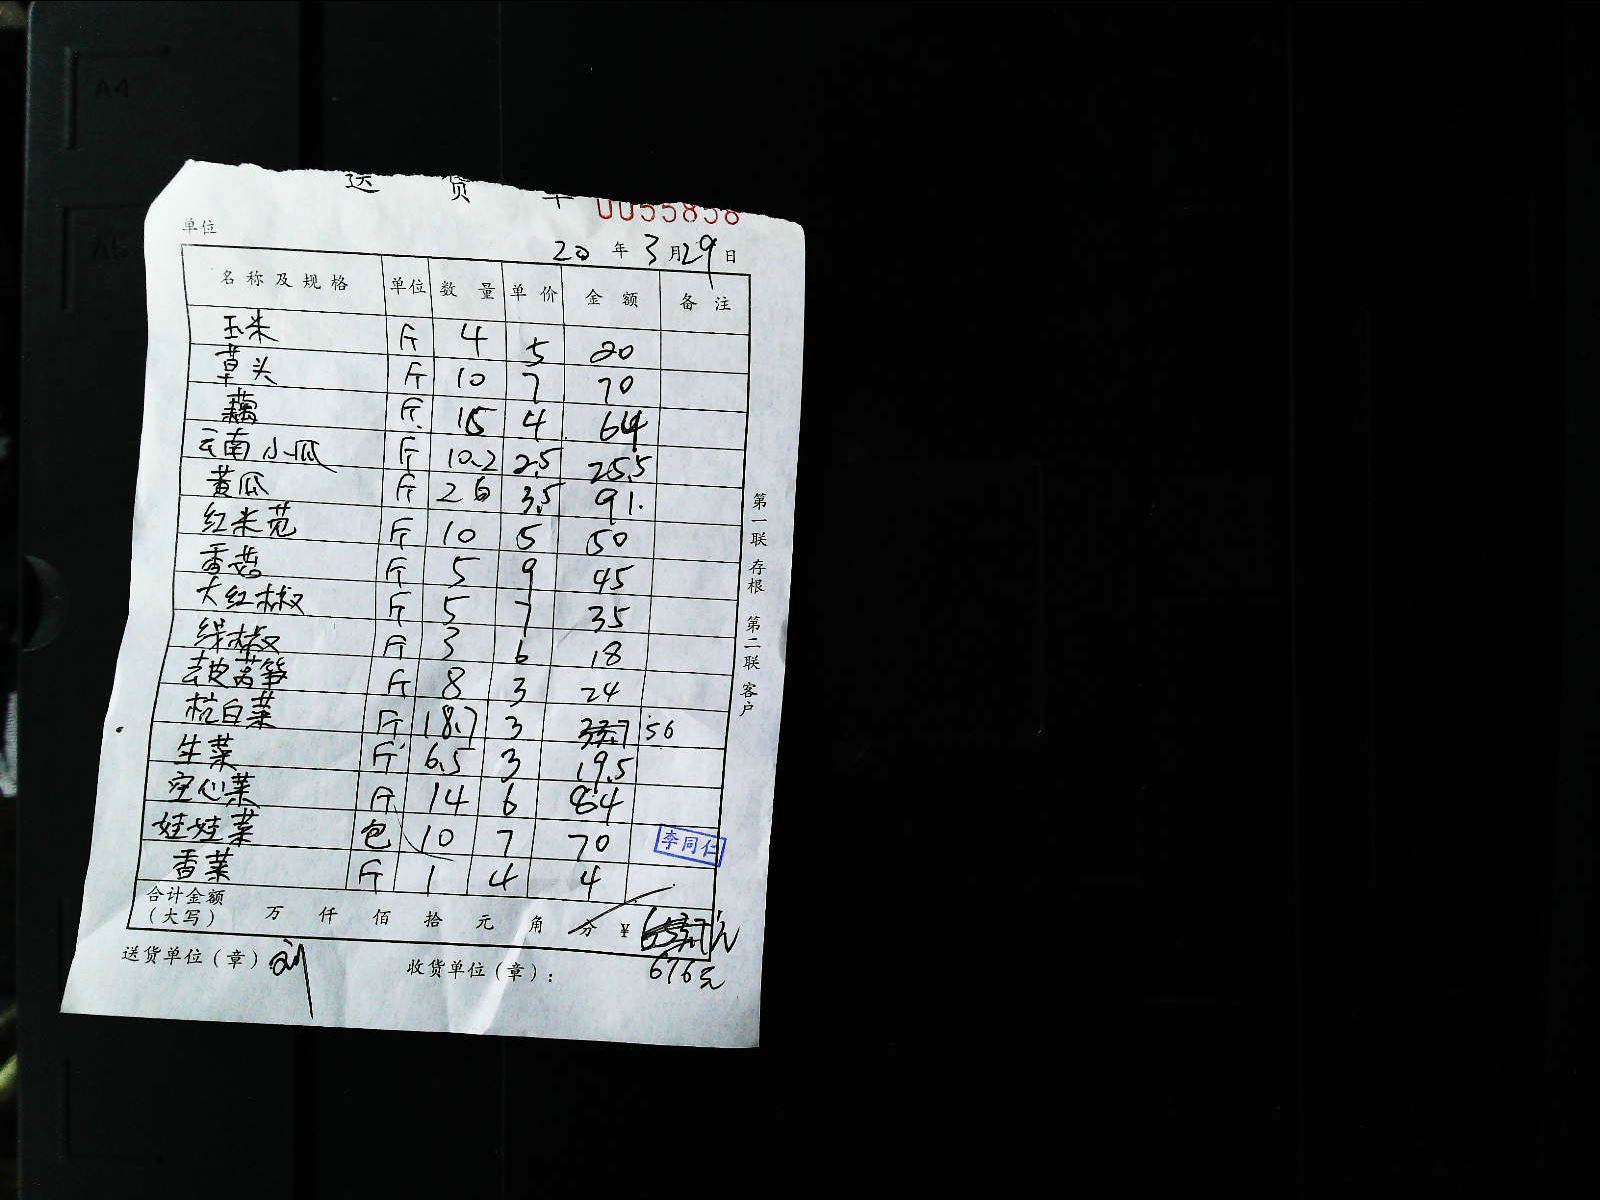 送 货 单
0055858
单位
20 年 3 月 29 日
名称及规格 单位 数量 单价 金额 备注
玉米 斤 4 5 20
草头 斤 10 7 70
藕 斤 16 4 64
云南小瓜 斤 10.2 2.5 25.5
黄瓜 斤 26 3.5 91.
红米苋 斤 10 5 50
香菇 斤 5 9 45
大红椒 斤 5 7 35
线椒 斤 3 6 18
去皮莴笋 斤 8 3 24
杭白菜 斤 18.7 3 56
生菜 斤 6.5 3 19.5
空心菜 斤 14 6 84
娃娃菜 包 10 7 70
香菜 斤 1 4 4
李同仁
合计金额
(大写) 万 仟 佰 拾 元 角 分 ¥ 元
676元
送货单位(章) 刘 收货单位(章):
第一联 存根 第二联 客户
A4
A5